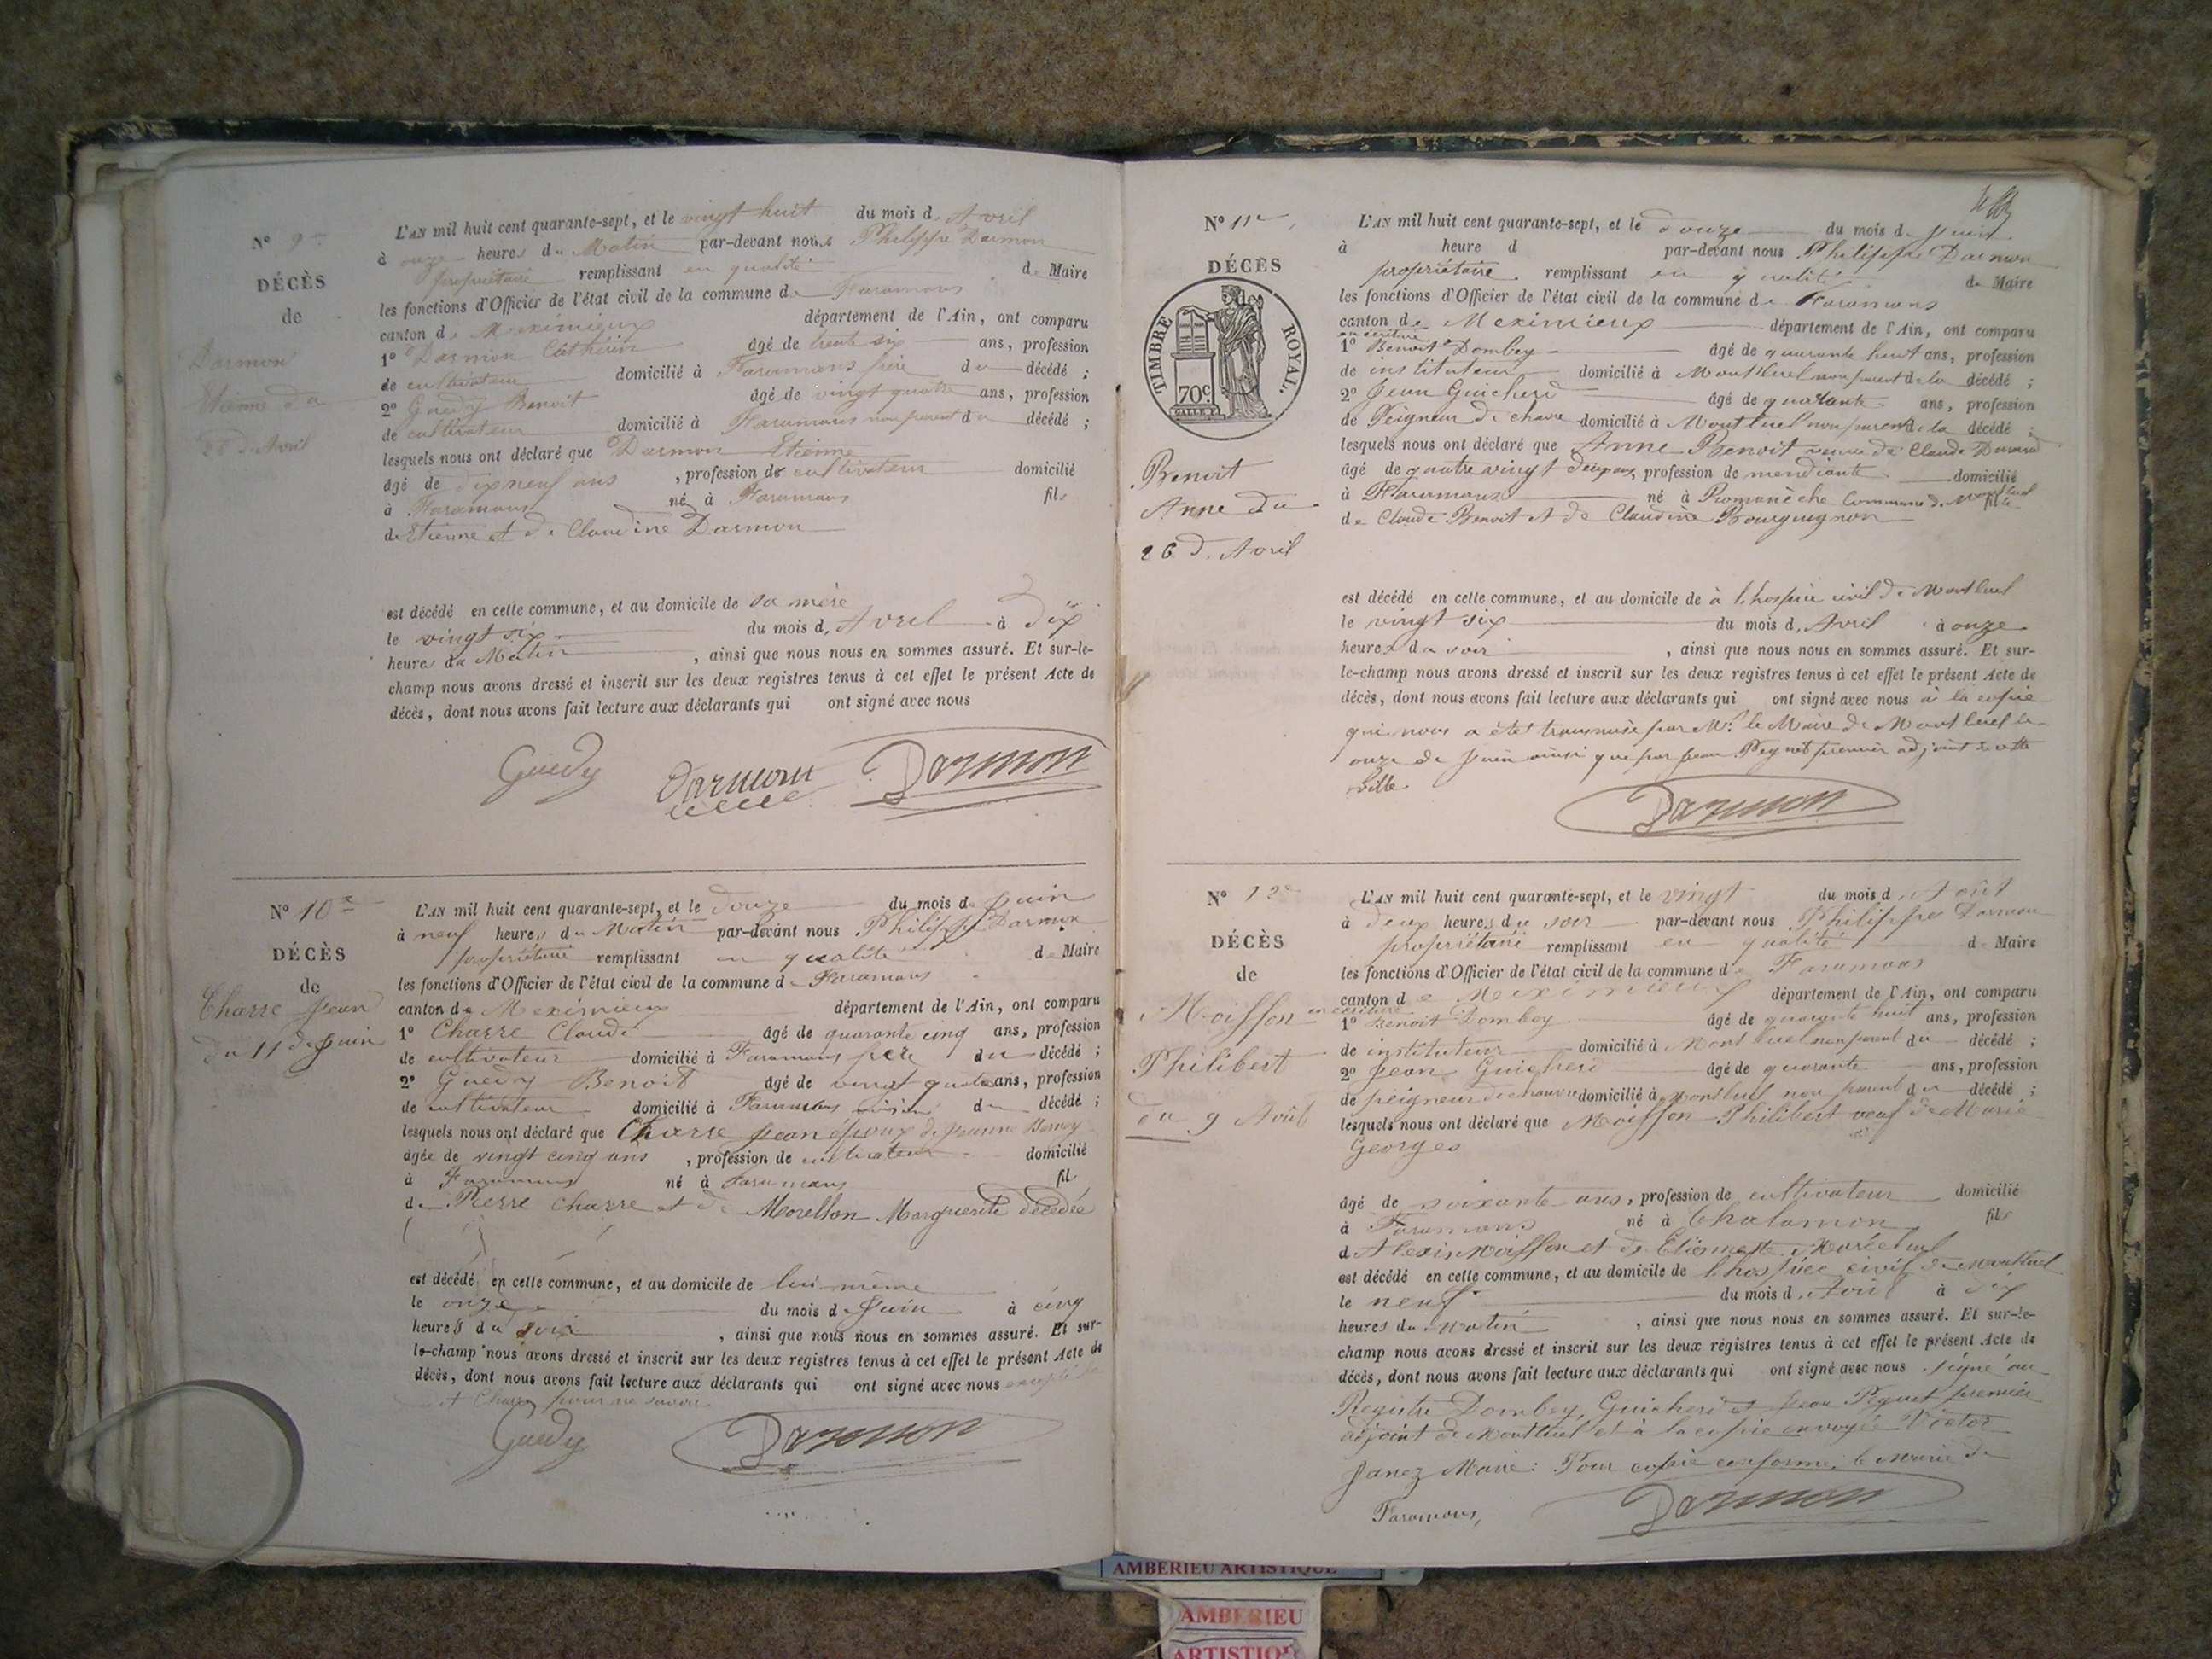 N° 9
DÉCÈS
de
Darmon
Etienne du
28 d'Avril
L'AN mil huit cent quarante-sept, et le vingt huit du mois d'Avril
à onze heures du Matin par-devant nous Philippe Darmon
propriétaire remplissant en qualité de Maire
les fonctions d'Officier de l'état civil de la commune de Faramans
canton de Meximieux département de l'Ain, ont comparu
1° Darmon Cathérin âgé de trente six ans, profession
de cultivateur domicilié à Faramans frère du décédé ;
2° Guedy Benoit âgé de vingt quatre ans, profession
de cultivateur domicilié à Faramans non parent du décédé ;
lesquels nous ont déclaré que Darmon Etienne
âgé de dix neuf ans , profession de cultivateur domicilié
à Faramans né à Faramans fils
de Etienne et de Claudine Darmon
est décédé en cette commune, et au domicile de sa mère
le vingt six du mois d'Avril à dix
heures du Matin , ainsi que nous nous en sommes assuré. Et sur-le-
champ nous avons dressé et inscrit sur les deux registres tenus à cet effet le présent Acte de
décès, dont nous avons fait lecture aux déclarants qui ont signé avec nous
Guedy Darmon Darmon
N° 10e
DÉCÈS
de
Charre Jean
du 11 de Juin
L'AN mil huit cent quarante-sept, et le douze du mois de Juin
à neuf heures du Matin par-devant nous Philippe Darmon
propriétaire remplissant en qualité de Maire
les fonctions d'Officier de l'état civil de la commune de Faramans
canton de Meximieux département de l'Ain, ont comparu
1° Charre Claude âgé de quarante cinq ans, profession
de cultivateur domicilié à Faramans frère du décédé ;
2° Guedy Benoit âgé de vingt quatre ans, profession
de cultivateur domicilié à Faramans voisin du décédé ;
lesquels nous ont déclaré que Charre Jean époux de Jeanne
âgée de vingt cinq ans , profession de cultivateur domicilié
à Faramans né à Faramans fils
de Pierre Charre et de Morellon Marguerite décédée
est décédé en cette commune, et au domicile de lui même
le onze du mois de Juin à cinq
heures du soir , ainsi que nous nous en sommes assuré. Et sur-
le-champ nous avons dressé et inscrit sur les deux registres tenus à cet effet le présent Acte de
décès, dont nous avons fait lecture aux déclarants qui ont signé avec nous excepté le
et Charre pour ne savoir.
Guedy Darmon
N° 11e
DÉCÈS
TIMBRE ROYAL.
70c.
Benoit
Anne du
26 d'Avril
L'AN mil huit cent quarante-sept, et le douze du mois de Juin
à heure d par-devant nous Philippe Darmon
propriétaire remplissant en qualité de Maire
les fonctions d'Officier de l'état civil de la commune de Faramans
canton de Meximieux département de l'Ain, ont comparu
en écriture
1° Benoit Dombey âgé de quarante huit ans, profession
de instituteur domicilié à Montluel non parent de la décédé ;
2° Jean Guicherd âgé de quarante ans, profession
de Peigneur de chanvre domicilié à Montluel non parent de la décédé ;
lesquels nous ont déclaré que Anne Benoit veuve de Claude
âgé de quatre vingt deux ans, profession de mendiante domicilié
à Faramans né à Romanèche Commune de Montluel fille
de Claude Benoit et de Claudine Bourguignon
est décédé en cette commune, et au domicile de à l'hospice civil de Montluel
le vingt six du mois d'Avril à onze
heures du soir , ainsi que nous nous en sommes assuré. Et sur-
le-champ nous avons dressé et inscrit sur les deux registres tenus à cet effet le présent Acte de
décès, dont nous avons fait lecture aux déclarants qui ont signé avec nous à la copie
qui nous a étés transmise par Mr. le Maire de Montluel le
onze de Juin ainsi que par Jean Peynet premier adjoint de cette
ville
Darmon
N° 12e
DÉCÈS
de
Moisson
Philibert
du 9 Août
L'AN mil huit cent quarante-sept, et le vingt du mois d'Août
à deux heures du soir par-devant nous Philippe Darmon
propriétaire remplissant en qualité de Maire
les fonctions d'Officier de l'état civil de la commune de Faramans
canton de Meximieux département de l'Ain, ont comparu
en écriture
1° Benoit Dombey âgé de quarante huit ans, profession
de instituteur domicilié à Montluel non parent du décédé ;
2° Jean Guicherd âgé de quarante ans, profession
de peigneur de chanvre domicilié à Montluel non parent du décédé ;
lesquels nous ont déclaré que Moisson Philibert veuf de Marie
Georges
âgé de soixante ans, profession de cultivateur domicilié
à Faramans né à Chalamon fils
d'Alexis Moisson et de Etiennette
est décédé en cette commune, et au domicile de l'hospice civil de Montluel
le neuf du mois d'Août à dix
heures du Matin , ainsi que nous nous en sommes assuré. Et sur-le-
champ nous avons dressé et inscrit sur les deux registres tenus à cet effet le présent Acte de
décès, dont nous avons fait lecture aux déclarants qui ont signé avec nous signé au
Registre Dombey, Guicherd et Jean Peynet premier
adjoint de Montluel et à la copie envoyée Victor
Janez Maire : Pour copie conforme, le Maire de
Faramans, Darmon
AMBERIEU ARTISTIQUE
AMBERIEU
ARTISTIQUE